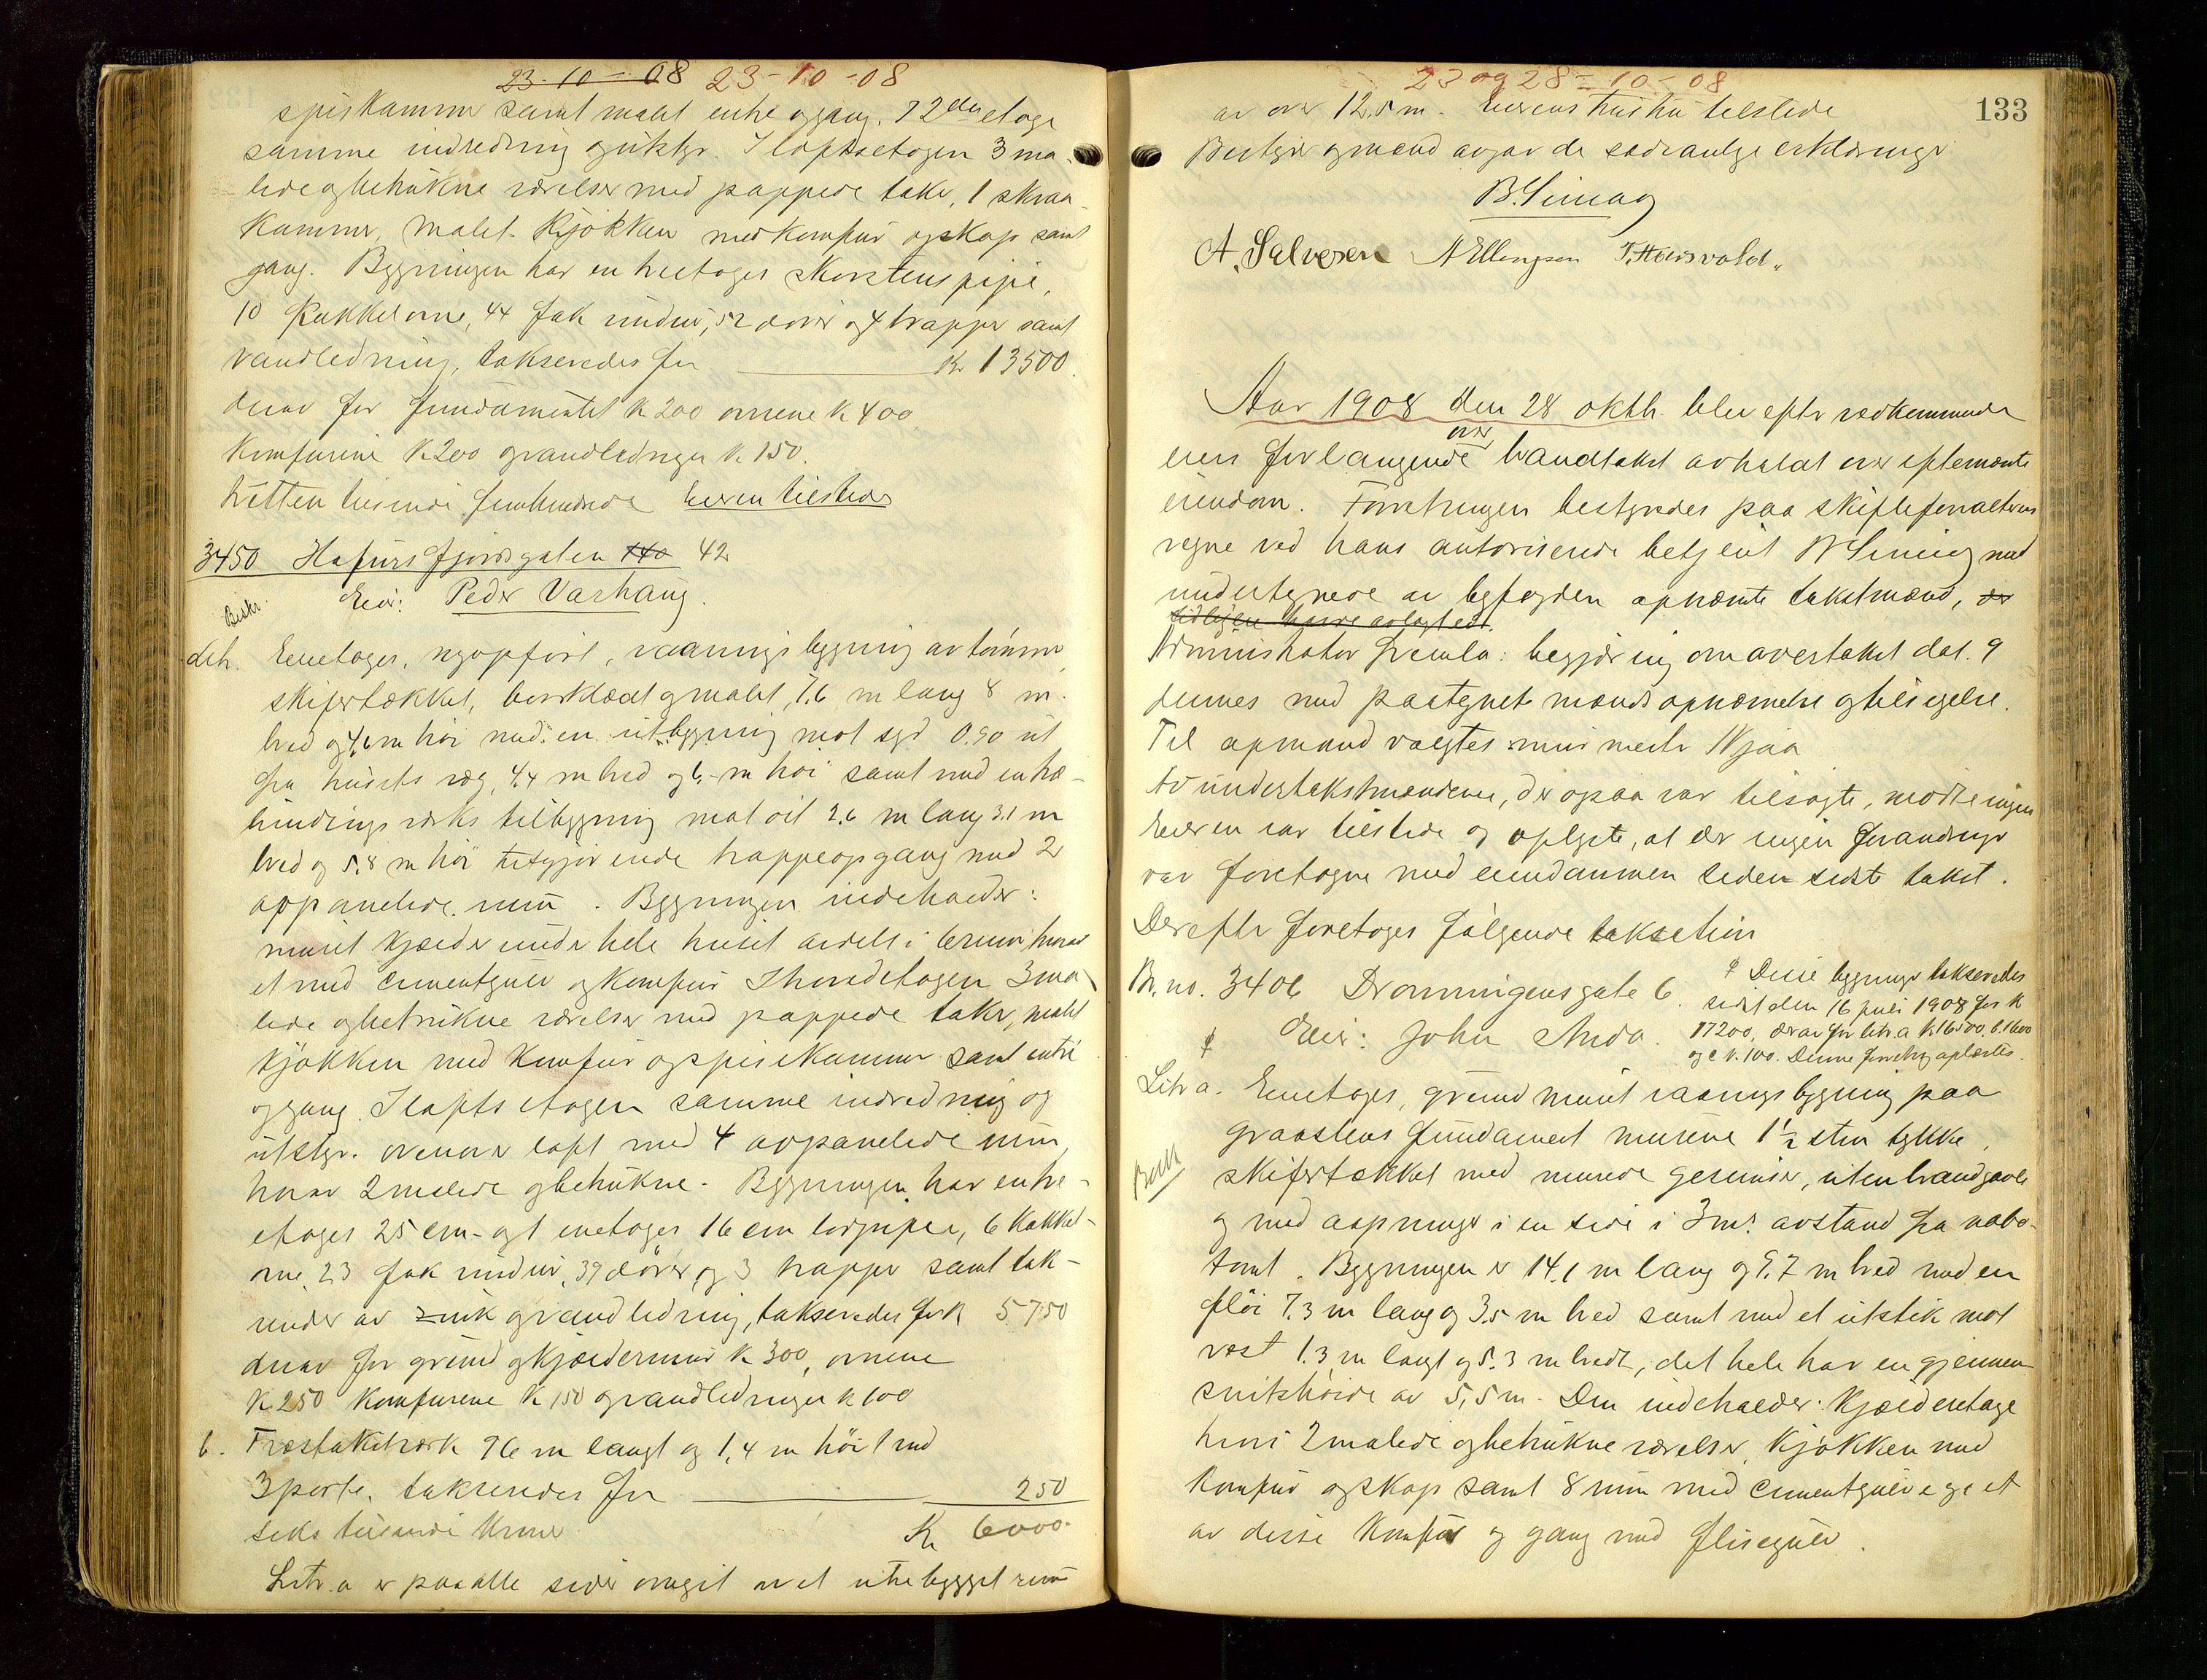 23-10-08 23-10-08
spiskammer samt malt entre og gang. I 2den etage
samme indredning og utstyr. I loftsetagen 3 ma-
lede og betrukne værelser med pappede taker, 1 skraa-
kammer, malet kjøkken med komfur og skap samt
gang. Bygningen har en treetages skorstenspipe,
10 kakkelovne, 44 fak vinduer, 52 dører og 4 trapper samt
vandledning, takseredes for kr 13500.
derav for fundamentet k 200 ovnene k 400
komfurene k 200 og vandledningen k 150.
tretten tusinde femhundrede Eieren tilstede
3450 Hafursfjordsgaten 140 42
Eier: Peder Varhaug.
Beskr.
Litr. Enetages, nyopført, vaaningsbygning av tømmer
skifertækket, bordklædt og malet, 7.6 m lang 8 m
bred og 4,6 m høi med en utbygning mot syd 0.90 ut
fra husets væg, 4.4 m bred og 6,- m høi samt med en træ-
bindingsverks tilbygning mot øst 2.6 m lang 3.1 m
bred og 5.8 m høi utgjørende trappeopgang med 2
oppanelede rum. Bygningen indeholder:
muret kjælder under hele huset avdelt i 6 rum, hvorav
et med cementgulv og komfur I hovedetagen 3 ma-
lede og betrukne værelser med pappede taker, malet
kjøkken med komfur og spisekammer samt entre
og gang. I loftsetagen samme indredning og
utstyr. ovenover loft med 4 avpanelede rum,
hvorav 2 malede og betrukne. Bygningen har en tre-
etages 25 cm- og 1 enetages 16 cm lodpiper, 6 kakkel-
ovne, 23 fak vinduer, 39 dører og 3 trapper samt tak-
render av zink og vandledning, takseredes for k 5750
derav for grund og kjældermur k 300, ovnene
k 250 komfurene k 150 og vandledningen k 100
b. Træstakitverk 76 m langt og 1,4 m høit med
3 porte, takseredes for 250
seks tusinde kroner Kr 6000.
Litr. a er paa alle sider omgit av et utrebygget rum
23 og 28-10-08
133
av over 12.5 m. Eierens hustru tilstede
Bestyrer og mænd avgav de sædvanlige erklæringer
A. Salvesen A Ellingsen
Aar 1908 den 28 oktbr. blev efter vedkommende
eiers forlangende over brandtakst avholdt over efternævnte
eiendom. Forretningen bestyredes paa skifteforvalterens
vegne ved hans autoriserede betjent med
undertegnede av byfogden opnævnte takstmænd, der
tidligere have avlagt ed.
Administrator fremla: begjæring om overtakst dat. 9
dennes med paategnet mandsopnævnelse og tilsigelse.
Til opmand valgtes murmester Njaa
Av undertakstmændene, der ogsaa var tilsagte, møtte ingen
Eieren var tilstede og oplyste, at der ingen forandringer
var foretagne med eiendommen siden sidste takst.
Derefter foretages følgende taksation
Br. no. 3406 Dronningensgate 6.
¢ Eier: John Anda.
¢ Disse bygninger takseredes
sidst den 16 juli 1908 for k
17200, derav for litr. a k 15500, b. 1600
og c k. 100. Denne forretning oplæstes.
Litr a. Enetages, grundmuret vaaningsbygning paa
graastens fundament murene 1½ sten tykke,
Beskr
skifertækket med murede gesimser, uten brandgavle
og med aapninger i en side i 3 m's avstand fra nabo-
tomt. Bygningen er 14,1 m lang og 9.7 m bred med en
fløi 7.3 m lang og 3.5 m bred samt med et utstik mot
vest 1.3 m langt og 5.3 m bredt, det hele har en gjennem-
snitshøide av 5,5 m. Den indeholder: Kjælderetage
hvori 2 malede og betrukne værelser, kjøkken med
komfur og skap samt 8 rum med cementgulv og et
av disse komfur og gang med flisegulv.